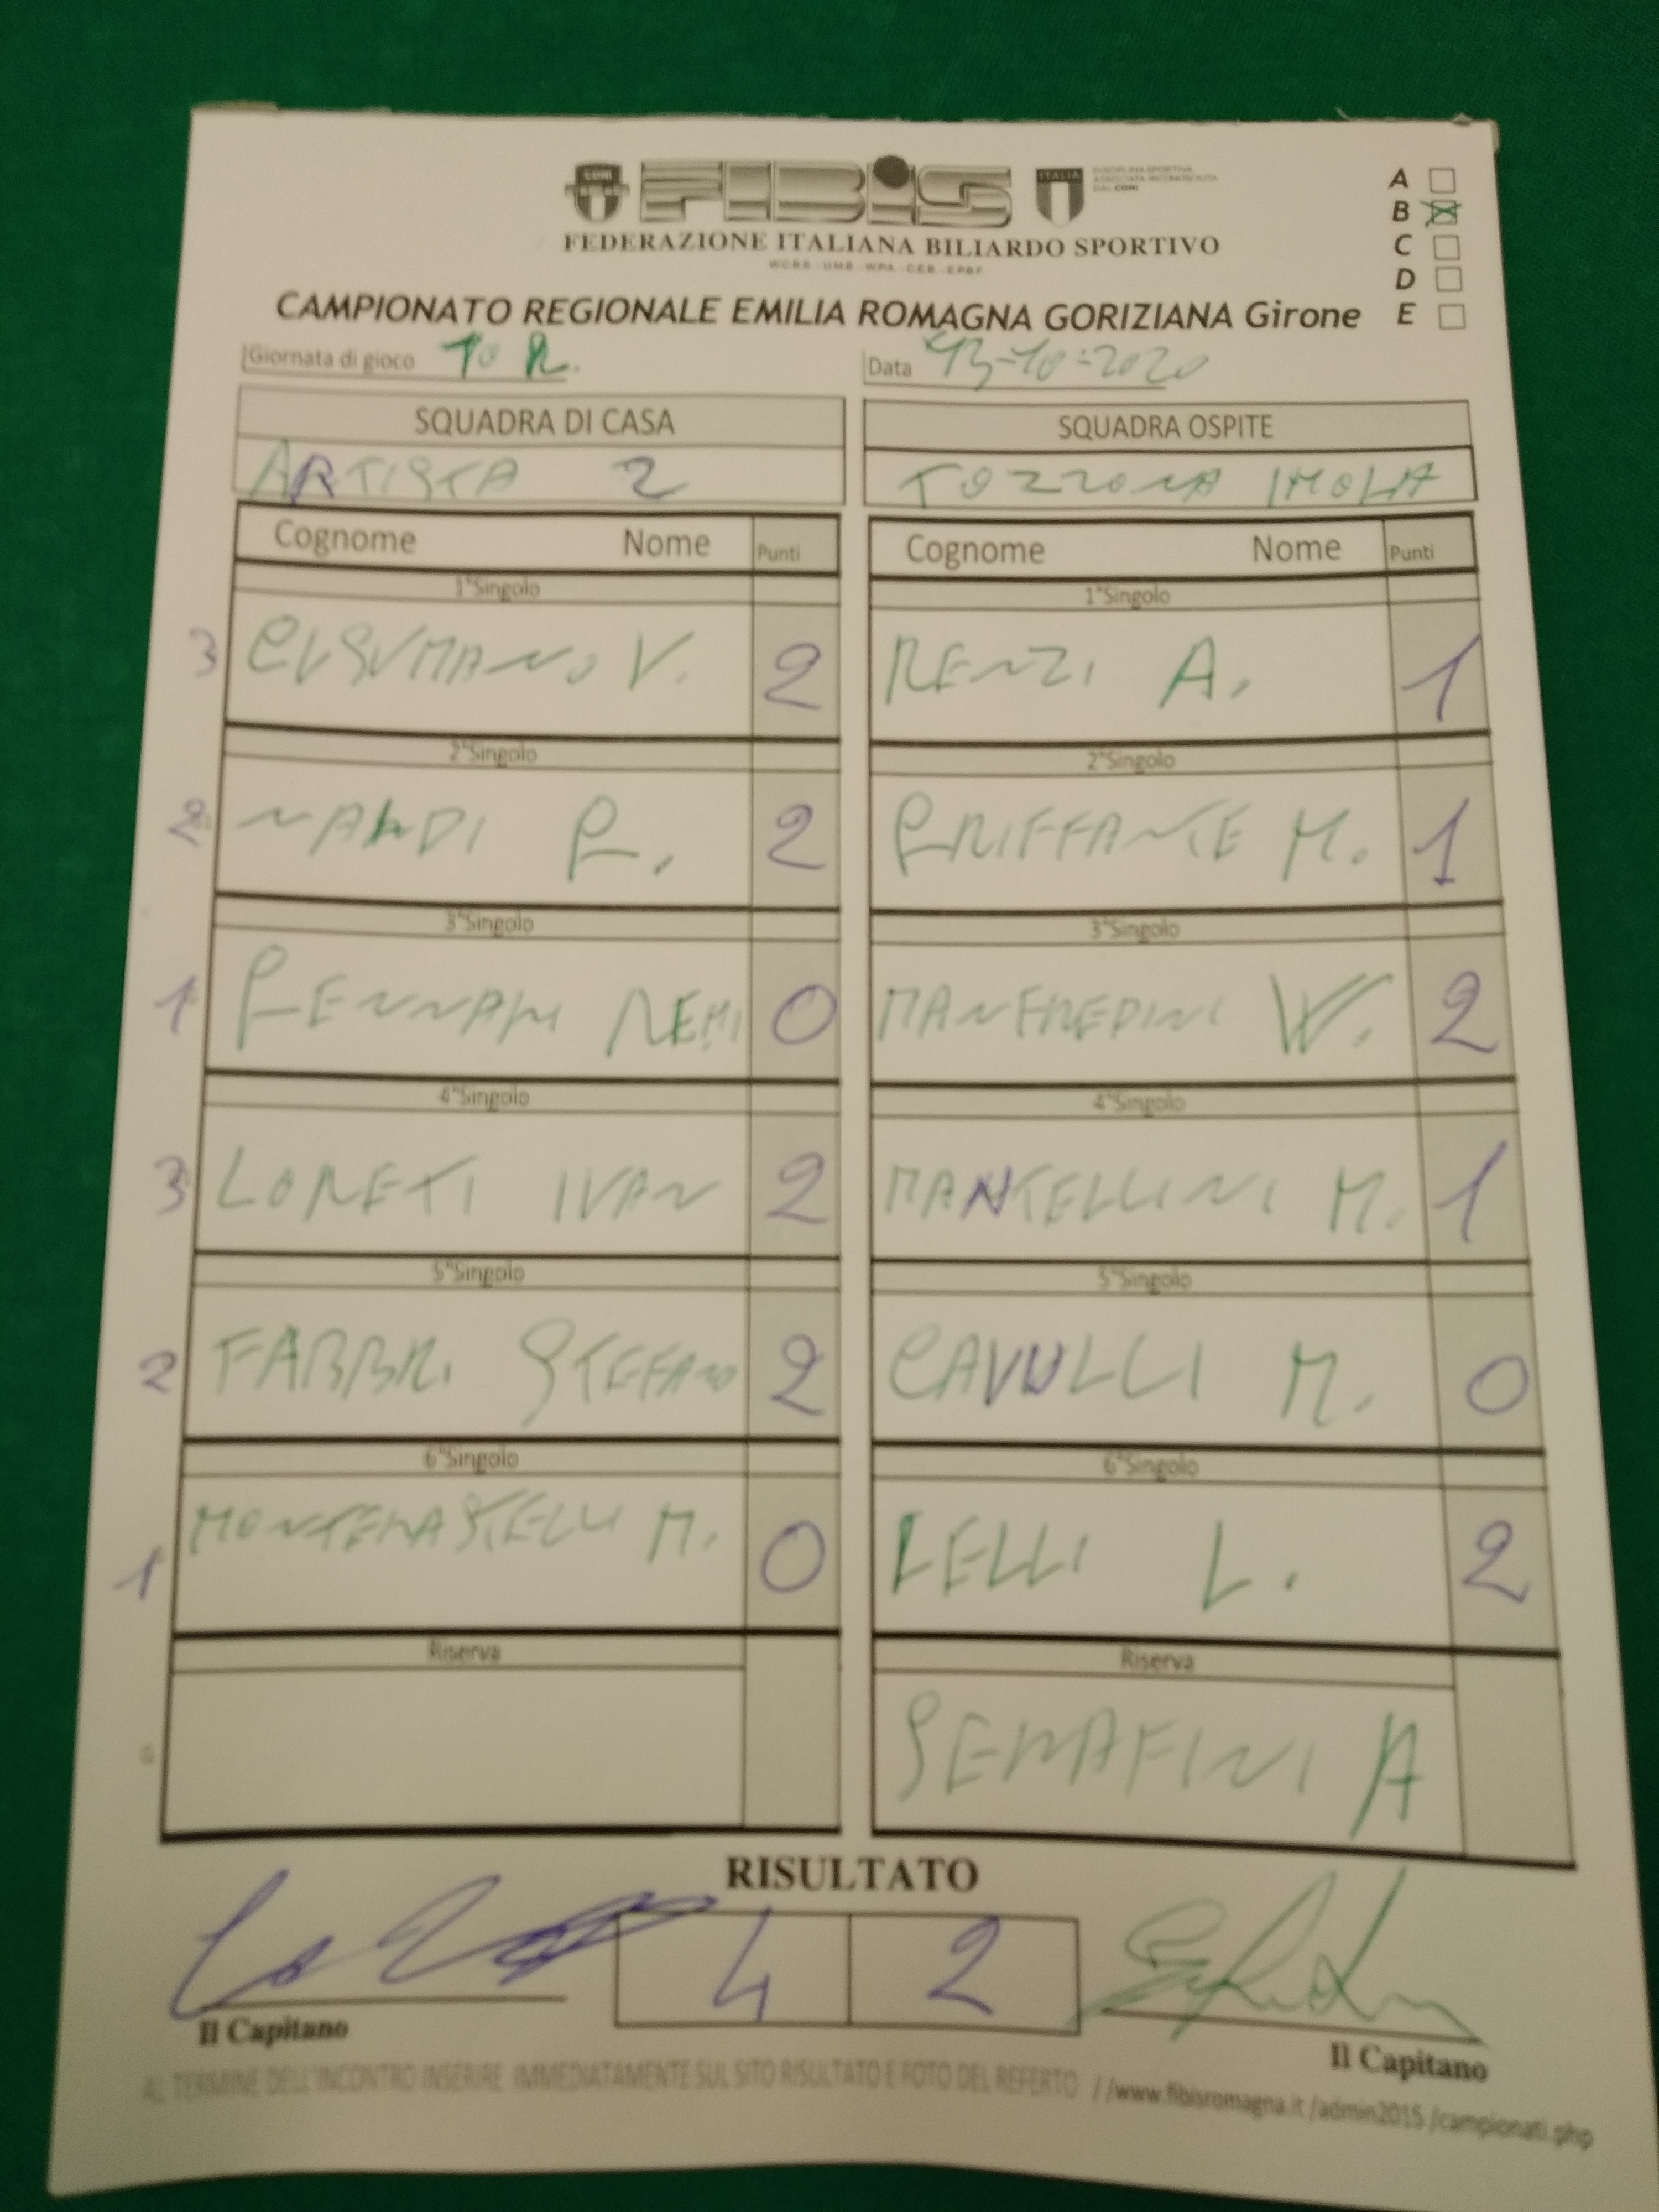 CONI
FIBIS
ITALIA
DISCIPLINA SPORTIVA
ASSOCIATA RICONOSCIUTA
DAL CONI
FEDERAZIONE ITALIANA BILIARDO SPORTIVO
W.C.B.S. - U.M.B. - W.P.A. - C.E.B. - E.P.B.F.
A
B
C
D
E
CAMPIONATO REGIONALE EMILIA ROMAGNA GORIZIANA Girone
Giornata di gioco 1° R.
Data 13-10-2020
SQUADRA DI CASA
SQUADRA OSPITE
ARTISTA 2
TOZZONA IMOLA
Cognome Nome Punti
Cognome Nome Punti
1°Singolo
1°Singolo
3 CUSUMANO V. 2
RENZI A. 1
2°Singolo
2°Singolo
2 NALDI G. 2
GRIFFANTE M. 1
3°Singolo
3°Singolo
1 GENNARI REMI 0
MANFREDINI W. 2
4°Singolo
4°Singolo
3 LORETI IVAN 2
MANTELLINI M. 1
5°Singolo
5°Singolo
2 FABBRI STEFANO 2
CAVULLI M. 0
6°Singolo
6°Singolo
1 MONTERASTELLI M. 0
LELLI L. 2
Riserva
Riserva
SERAFINI A
RISULTATO
4 2
Il Capitano
Il Capitano
AL TERMINE DELL'INCONTRO INSERIRE IMMEDIATAMENTE SUL SITO RISULTATO E FOTO DEL REFERTO //www.fibisromagna.it /admin2015 /campionati.php